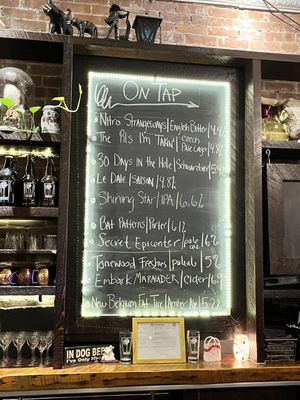 ON TAP
Nitro Strangeways/English Bitter/4.4%
The Pils I'm Takin'/Czech Pale Lager/4.8%
30 Days in the Hole/Schwarzbier/5.4%
Le Dale/SAISON/4.8%
Shining Star/IPA/6.6%
Bat Patterns/Porter/6.1%
Secret Epicenter/pale ale/6%
Tonewood Freshies/paleale/5%
Embark MARAUDER/Cider/6.9%
New Belgium Fat Tire/Amber Ale/5.2%
IN DOG BEERS
I've Only